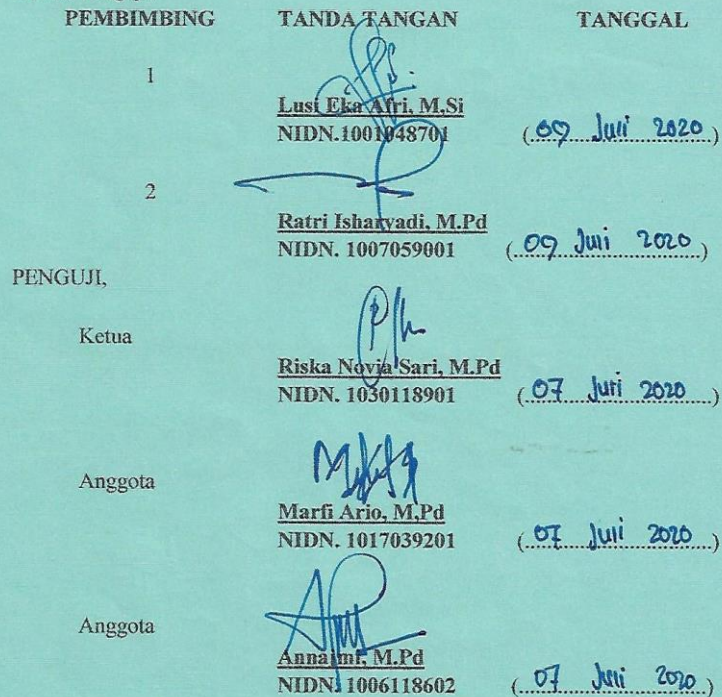 PEMBIMBING TANDA TANGAN TANGGAL
1
Lusi Eka Afri, M,Si
NIDN.1001048701 (09 Juli 2020)
2
Ratri Isharyadi, M.Pd
NIDN. 1007059001 (09 Juli 2020)
PENGUJI,
Ketua
Riska Novia Sari, M.Pd
NIDN. 1030118901 (07 Juli 2020)
Anggota
Marfi Ario, M,Pd
NIDN. 1017039201 (07 Juli 2020)
Anggota
Annajmi, M.Pd
NIDN. 1006118602 (07 Juli 2020)